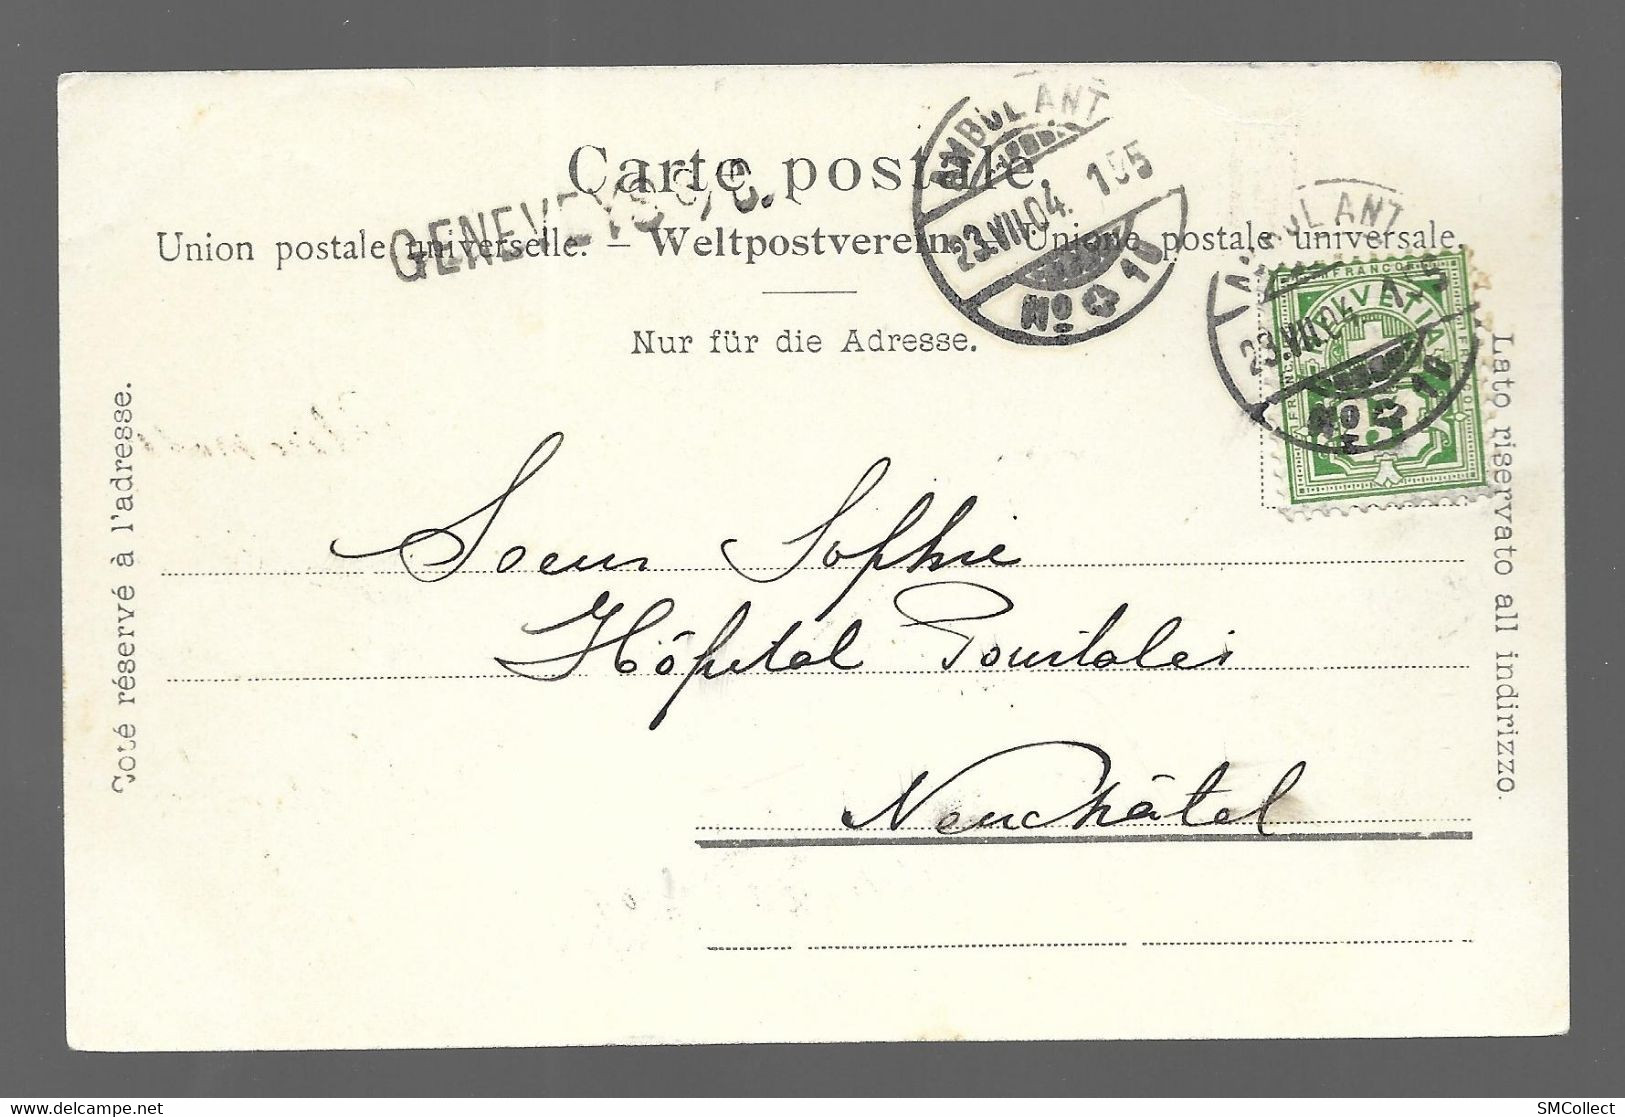 Carte postale.
GENEVEYS s/C.
Union postale universelle. — Weltpostverein. — Unione postale universale.
Nur für die Adresse.
AMBULANT
23.VII.04. 155
No 10
AMBULANT
23.VII.04
No 10
FRANCO
HELVETIA
FRANCO
FRANCO
5
Coté réservé à l'adresse.
Lato riservato all indirizzo.
Soeur Sophie
Hôpital Pourtalès
Neuchâtel
SMCollect
www.delcampe.net